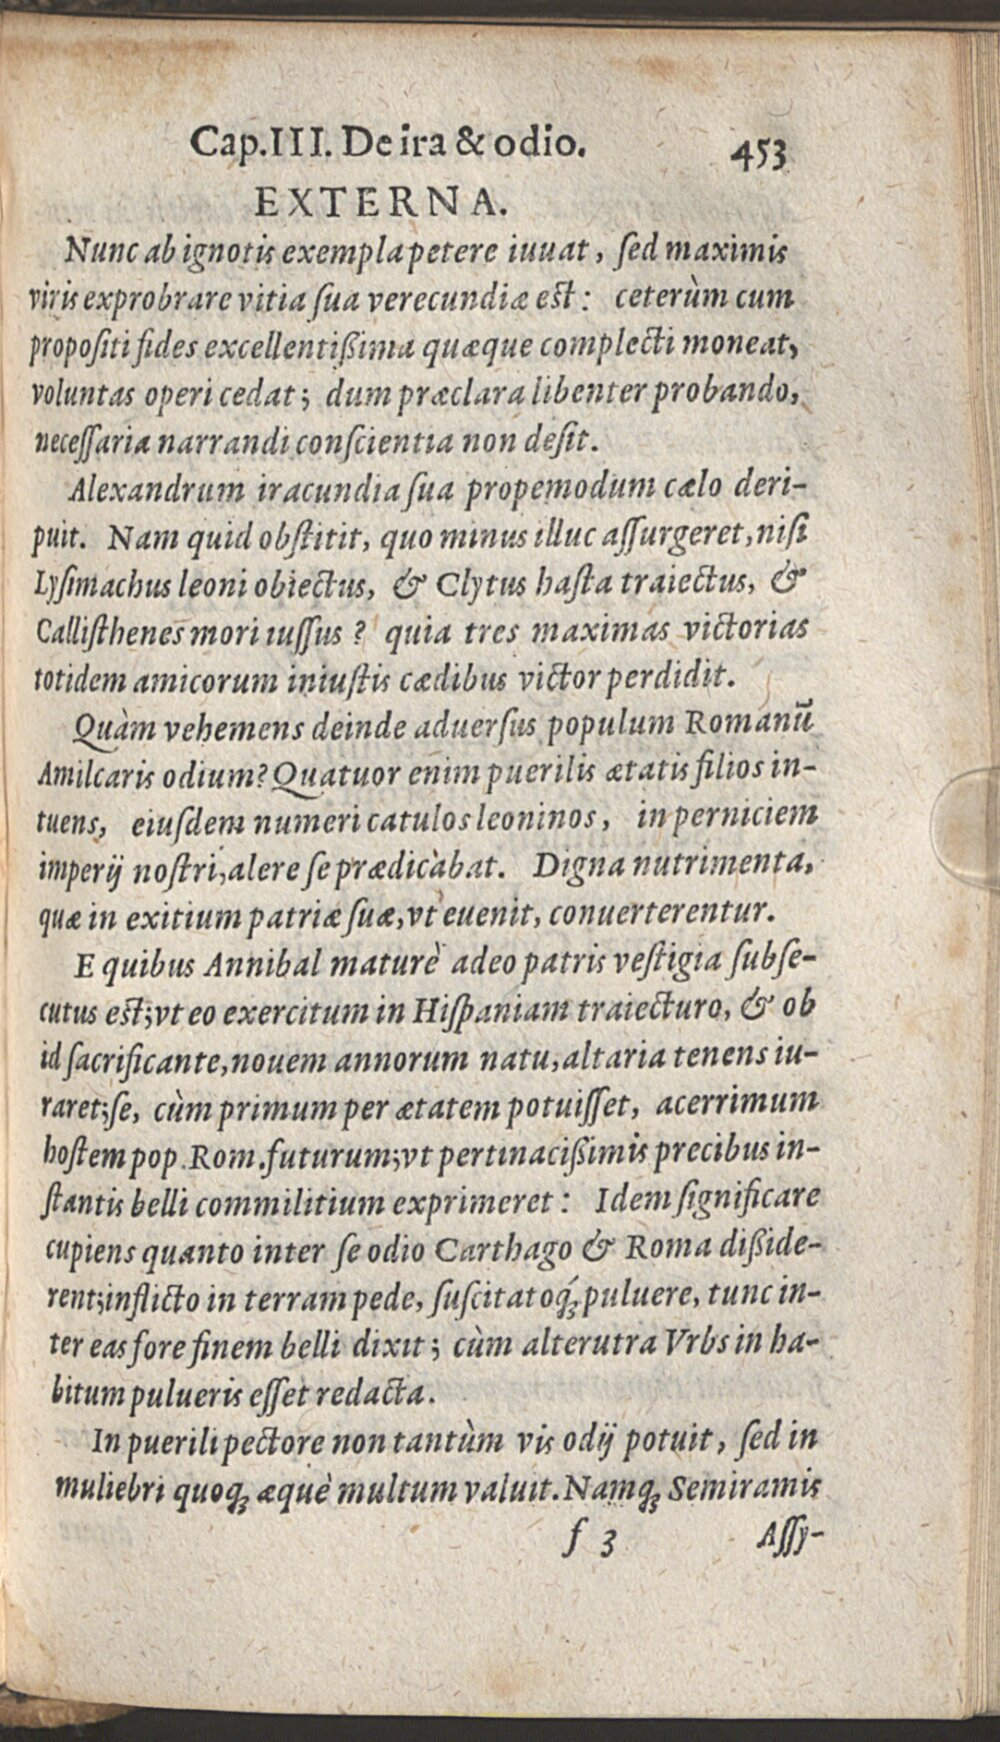 Cap.III. De ira & odio. 453
EXTERNA.
Nunc ab ignotis exempla petere iuuat, ſed maximis
viris exprobrare vitia ſua verecundiæ eſt: ceterùm cum
propoſiti fides excellentißima quæque complecti moneat,
voluntas operi cedat; dum præclara libenter probando,
neceſſaria narrandi conſcientia non deſit.
Alexandrum iracundia ſua propemodum cælo deri-
puit. Nam quid obſtitit, quo minus illuc aſſurgeret, niſi
Lyſimachus leoni obiectus, & Clytus haſta traiectus, &
Calliſthenes mori iuſſus? quia tres maximas victorias
totidem amicorum iniuſtis cædibus victor perdidit.
Quàm vehemens deinde aduerſus populum Romanū
Amilcaris odium? Quatuor enim puerilis ætatis filios in-
tuens, eiuſdem numeri catulos leoninos, in perniciem
imperij noſtri, alere ſe prædicabat. Digna nutrimenta,
quæ in exitium patriæ ſuæ, vt euenit, conuerterentur.
E quibus Annibal maturè adeo patris veſtigia ſubſe-
cutus eſt; vt eo exercitum in Hiſpaniam traiecturo, & ob
id ſacrificante, nouem annorum natu, altaria tenens iu-
raret; ſe, cùm primum per ætatem potuiſſet, acerrimum
hoſtem pop. Rom. futurum; vt pertinacißimis precibus in-
ſtantis belli commilitium exprimeret: Idem ſignificare
cupiens quanto inter ſe odio Carthago & Roma dißide-
rent; inflicto in terram pede, ſuſcitatoq́; puluere, tunc in-
ter eas fore finem belli dixit; cùm alterutra Vrbs in ha-
bitum pulueris eſſet redacta.
In puerili pectore non tantùm vis odij potuit, ſed in
muliebri quoq; æquè multum valuit. Namq; Semiramis
f 3 Aſſy-